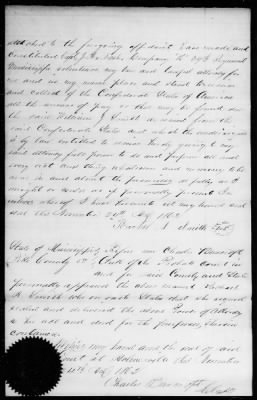 attached to the foregoing affidavit have made and
Constituted Capt J. H. Company K 39th Regiment
Mississippi volunteers my true and lawful attorney for
me and in my name place and stead to
and collect of the Confederate States of America
all the arrears of pay &c that may be found due
the said William J Smith deceased from the
said Confederate States and which the undersigned
is by law entitled to receive hereby giving to my
said attorney full power to do and perform all and
every act and thing whatsoever and necessary to be
done in and about the premises as fully as I
might or could do if personally present In
witness whereof I have hereunto set my hand and
seal this November 1862
Rachel S Smith Seal
State of Mississippi Before me Charles
Pike County Clerk of the Probate Court in
and for said County and State
personally appeared the above named Rachel
S Smith who on oath States that she signed
sealed and delivered the above Power of Attorney
as her act and deed for the purposes therein
contained
Witness my hand and the seal of said
Court at Holmesville this November
1862
Charles
Clerk